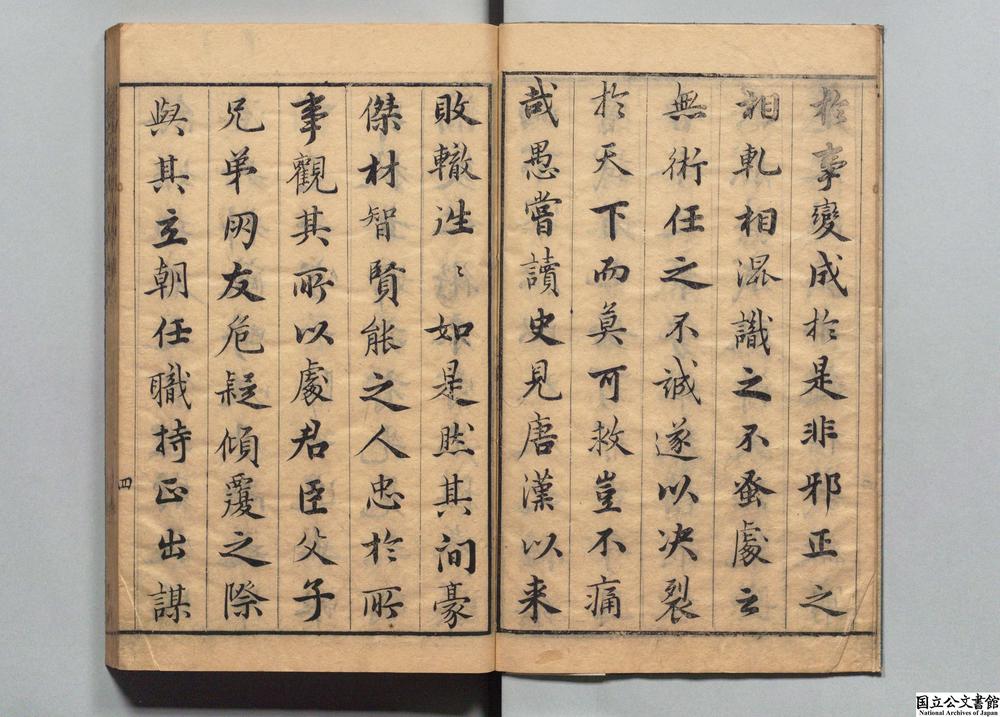 於事變成於是非邪正之
相軋相混識之不蚤處之
無術任之不誠遂以决裂
於天下而莫可救豈不痛
哉愚嘗讀史見唐漢以来
敗轍往〻如是然其間豪
傑材智賢能之人忠於所
事觀其所以處君臣父子
兄弟朋友危疑傾覆之際
與其立朝任職持正出謀
四
国立公文書館
National Archives of Japan